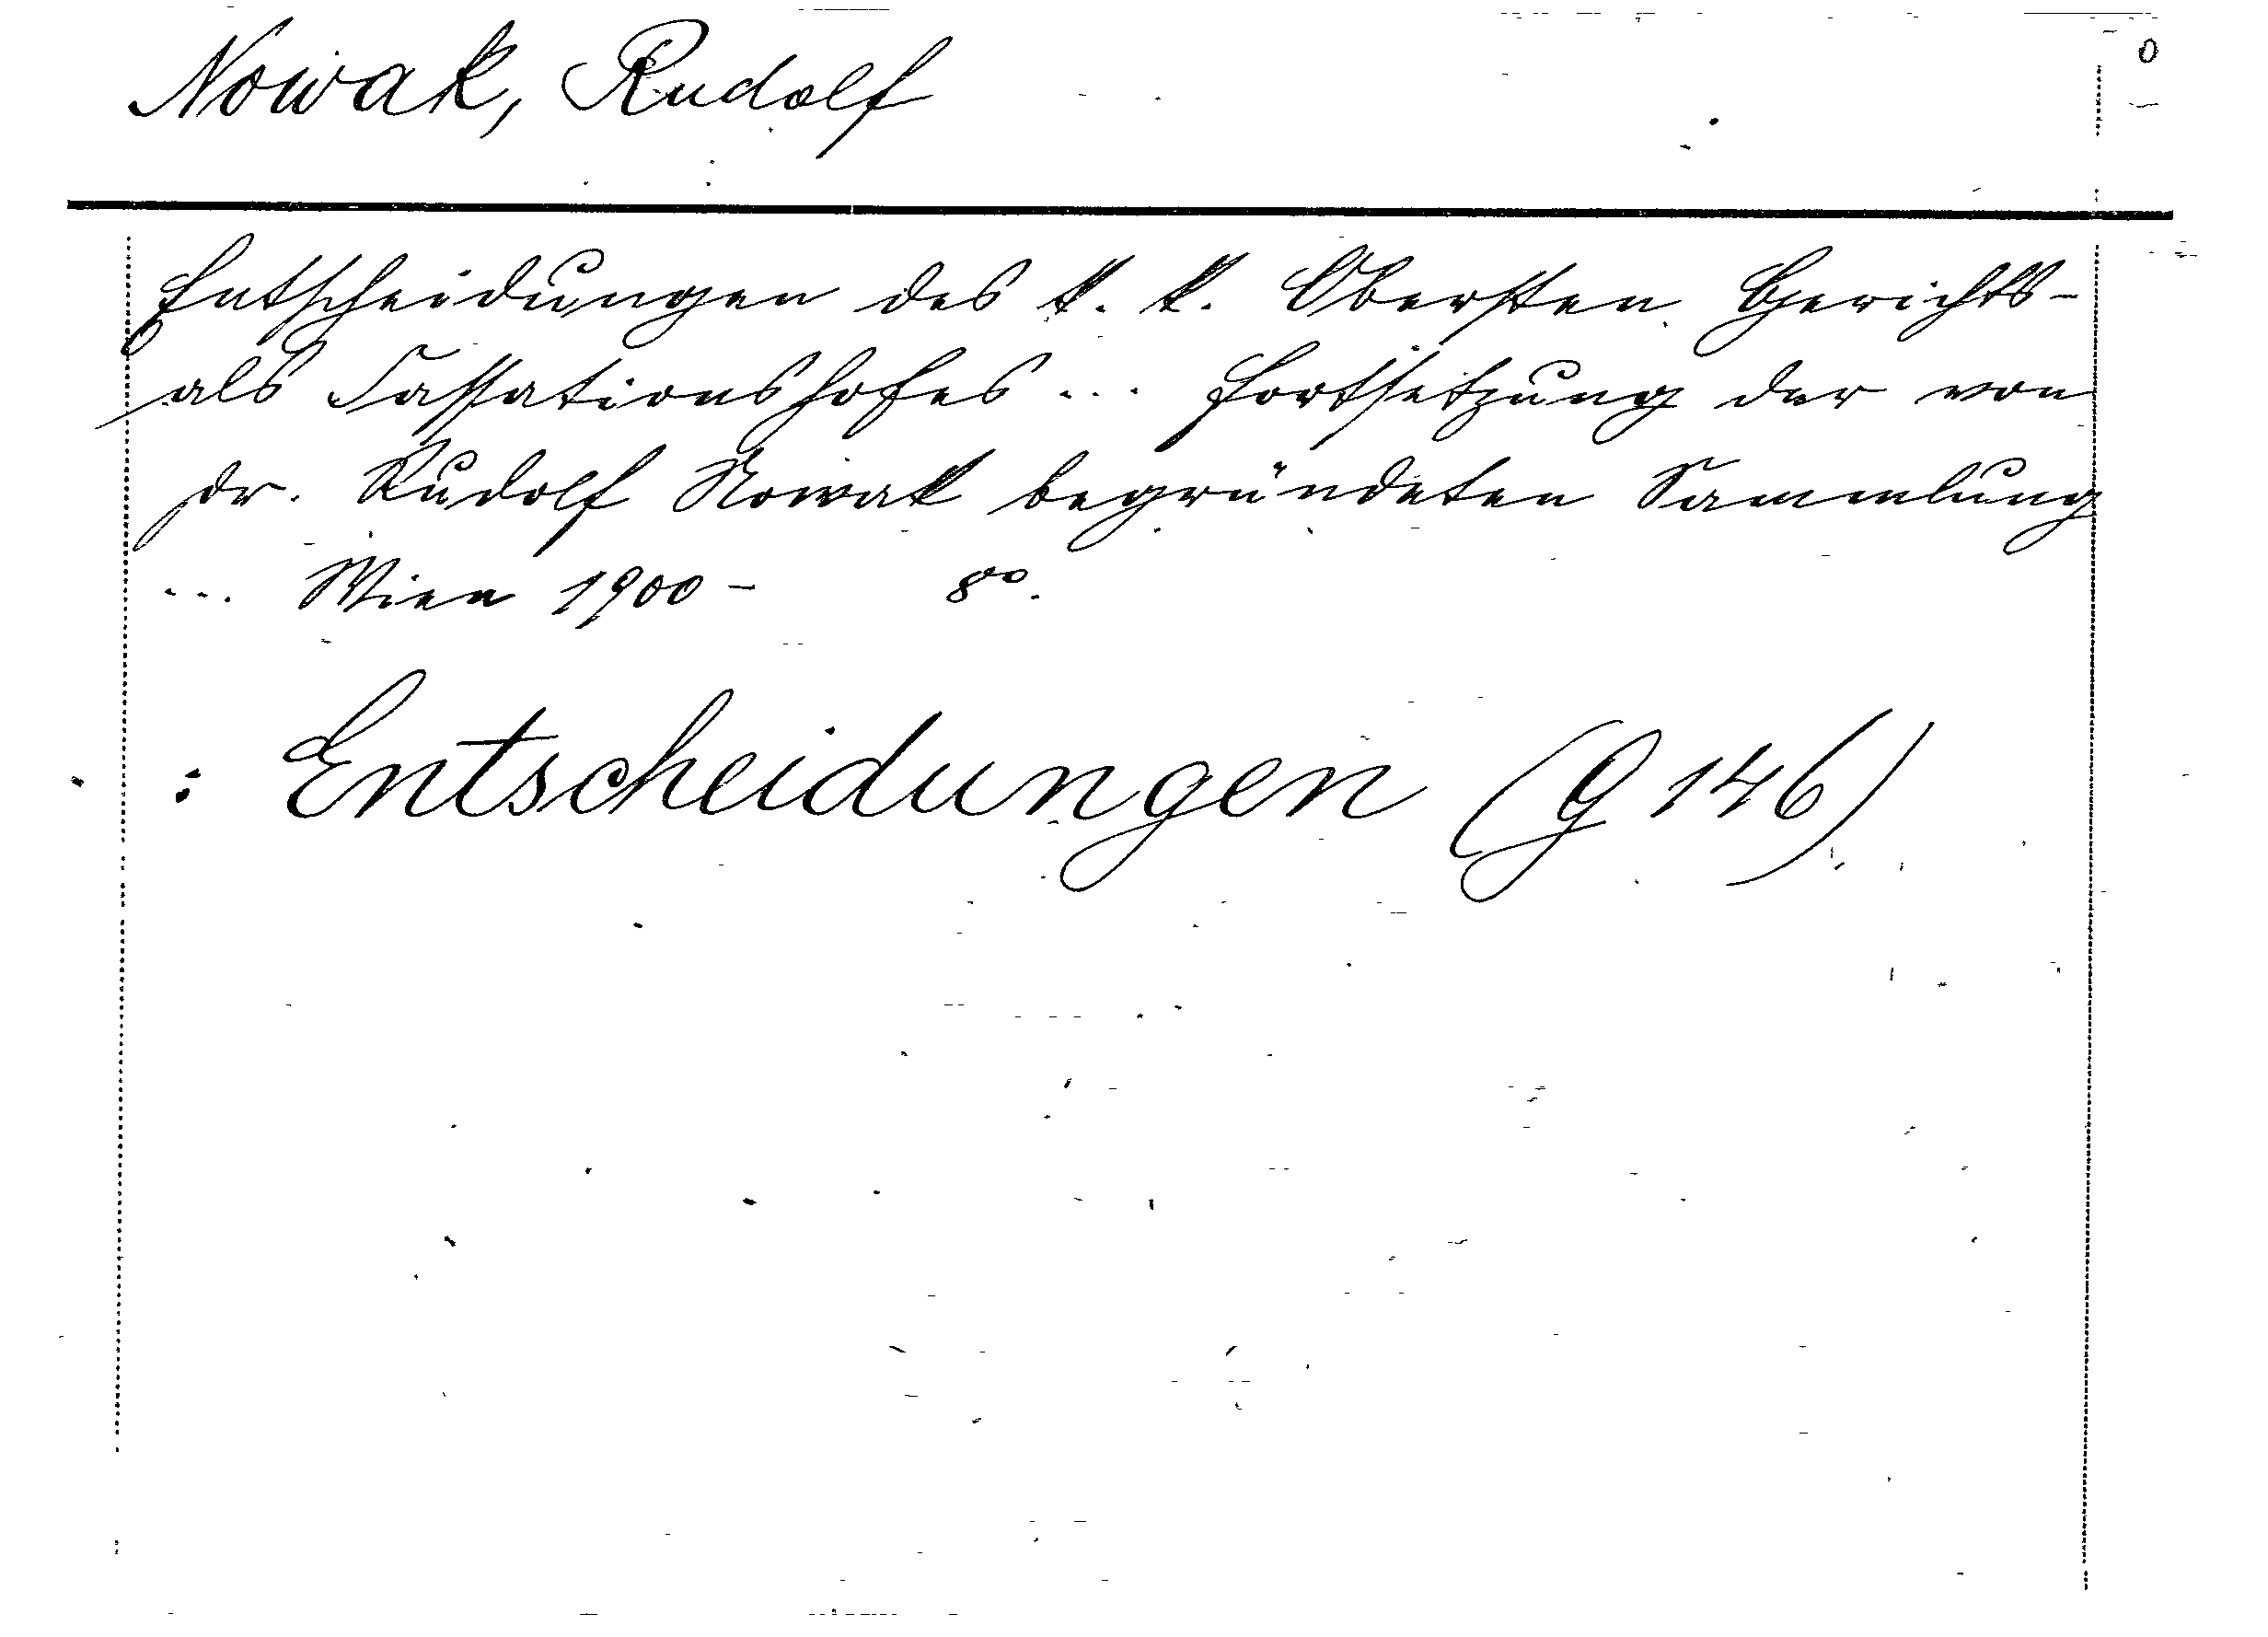 Nowak, Rudolf
Entscheidungen des k. k. Obersten Gerichts-
als Cassationshofes ... Fortsetzung der von
Dr. Rudolf Nowak begründeten Sammlung
... Wien 1900- 8°.
: Entscheidungen (G 146)